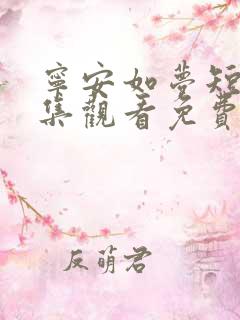 寧安如夢短
集觀看免費
反萌君